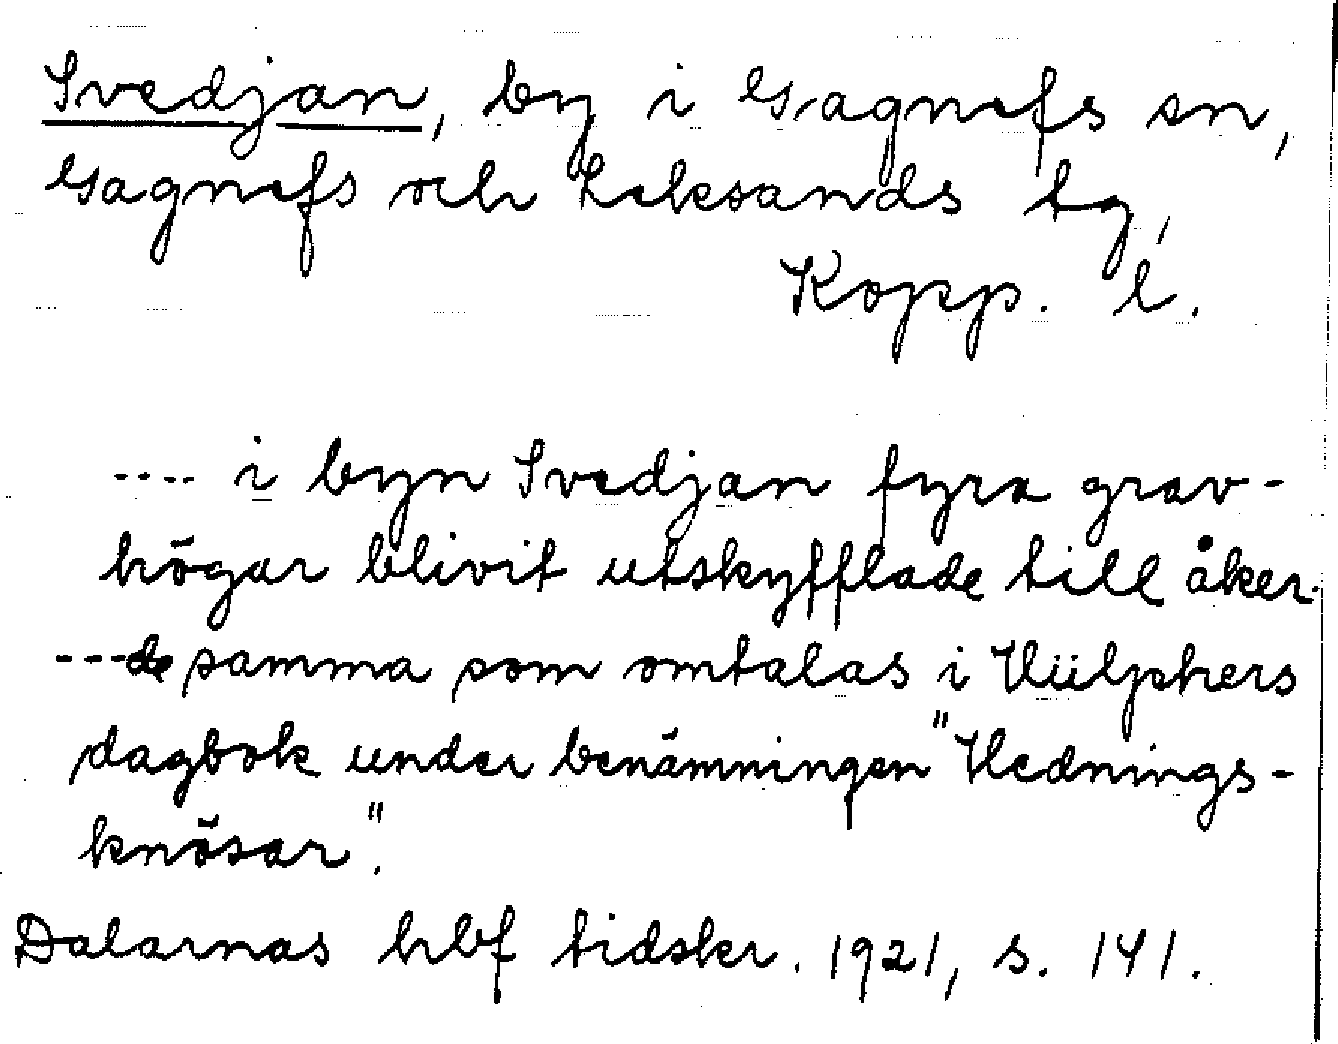 Svedjan, by i Gagnefs sn,
Gagnefs och Leksands tg,
Kopp. l.
---- i byn Svedjan fyra grav-
högar blivit utskyfflade till åker.
---de samma som omtalas i Hülphers
dagbok under benämningen "Hednings-
knösar".
Dalarnas hbf tidskr. 1921, s. 141.